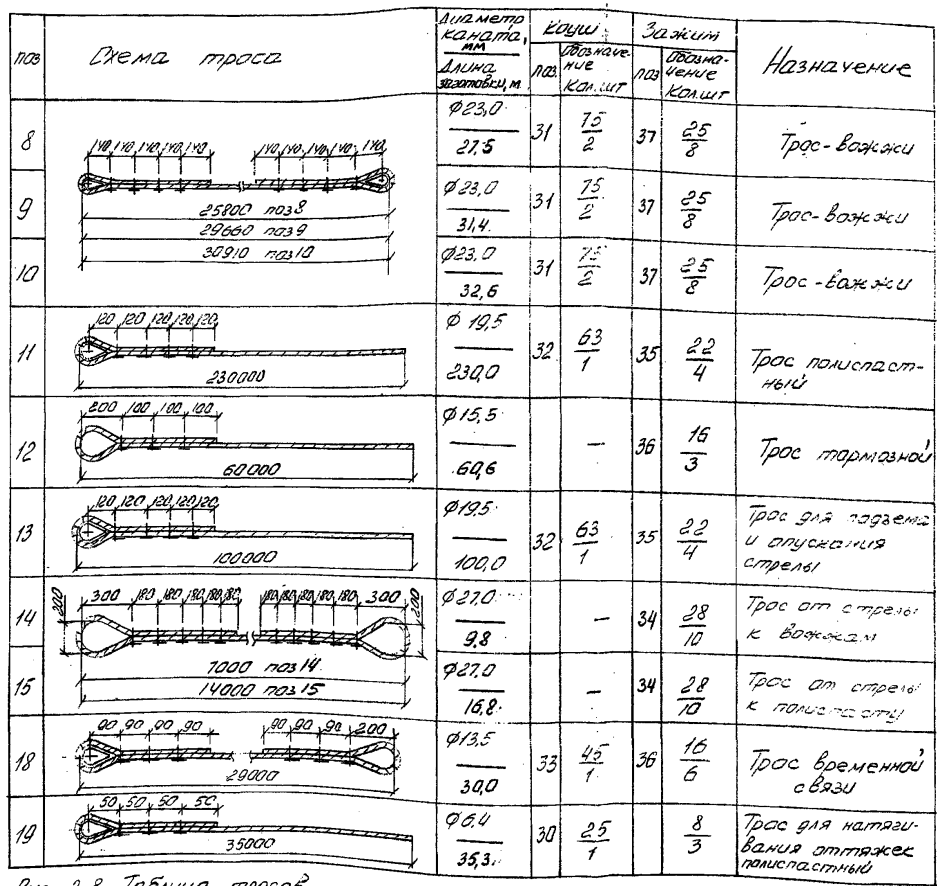 поз
Схема троса
Диаметр
каната,
мм
Длина
заготовки, м
Коуш
поз.
Обозначе-
ние
Кол.шт
Зажим
поз
Обозна-
чение
Кол.шт
Назначение
8
140 140 140 140 140
140 140 140 140 140
ф23,0
27,5
31
75
2
37
25
8
Трос-вожжи
9
25800 поз 8
29660 поз 9
30910 поз 10
ф23,0
31,4
31
75
2
37
25
8
Трос-вожжи
10
ф23,0
32,6
31
75
2
37
25
8
Трос-вожжи
11
120 120 120 120 120
230000
ф 19,5
230,0
32
63
1
35
22
4
Трос полиспаст-
ный
12
200 100 100 100
60000
ф15,5
60,6
—
36
16
3
Трос тормозной
13
120 120 120 120 120
100000
ф19,5
100,0
32
63
1
35
22
4
Трос для подъема
и опускания
стрелы
14
200
300 180 180 180 180 180
180 180 180 180 180 300
200
7000 поз 14
14000 поз 15
ф27,0
9,8
—
34
28
10
Трос от стрелы
к вожжам
15
ф27,0
16,8
—
34
28
10
Трос от стрелы
к полиспасту
18
90 90 90 90
90 90 90 200
29000
ф13,5
30,0
33
45
1
36
16
6
Трос временной
связи
19
50 50 50 50
35000
ф6,4
35,3
30
25
1
8
3
Трос для натяги-
вания оттяжек
полиспастный
Таблица тросов